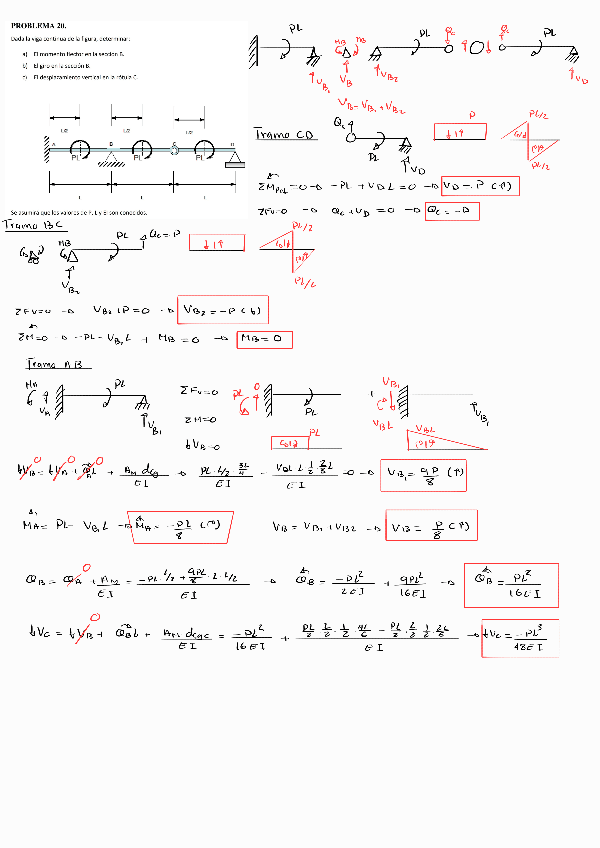 PROBLEMA 20.
Dada la viga continua de la figura, determinar:
a) El momento flector en la sección B.
b) El giro en la sección B.
c) El desplazamiento vertical en la rótula C.
L/2 L/2 L/2
A B C D
PL PL PL
L L L
Se asumirá que los valores de P, L y EI son conocidos.
PL MB MB PL Qc Qc PL
VB1 VB VB2 VD
VB = VB1 + VB2
Tramo CD
Qc PL VD P PL/2 PL/2
ΣM = 0 → -PL + VD L = 0 → VD = P (↑)
ΣFv=0 → Qc + VD = 0 → Qc = -P
Tramo BC
MB PL Qc = P VB2 PL/2 PL/2
ΣFv=0 → VB2 + P = 0 → VB2 = -P (↓)
ΣM=0 → -PL - VB2 L + MB = 0 → MB = 0
Tramo AB
MA VA PL VB1
ΣFv=0 PL 0 PL
ΣM=0 VB1 VB1
VB=0 PL VBL VBL
VB = VA + θA L + AM dcg / EI → PL · L/2 · 3L/4 / EI - VB1 L L 1/2 2/3 L / EI = 0 → VB1 = 9P/8 (↑)
MA = PL - VB1 L → MA = -PL/8
VB = VB1 + VB2 → VB = P/8 (↑)
θB = θA + AM / EI = -PL · L/2 + 9PL/8 · L · 1/2 / EI → θB = -PL²/2EI + 9PL²/16EI → θB = PL²/16EI
VC = VB + θB L + AM dcgc / EI